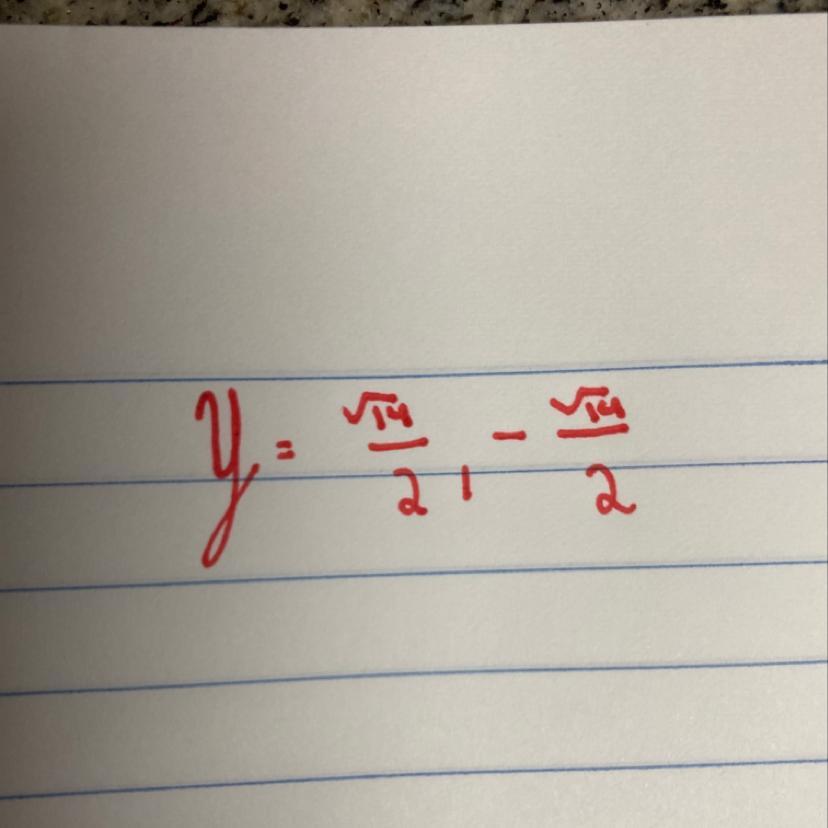 y = √14/2, - √14/2